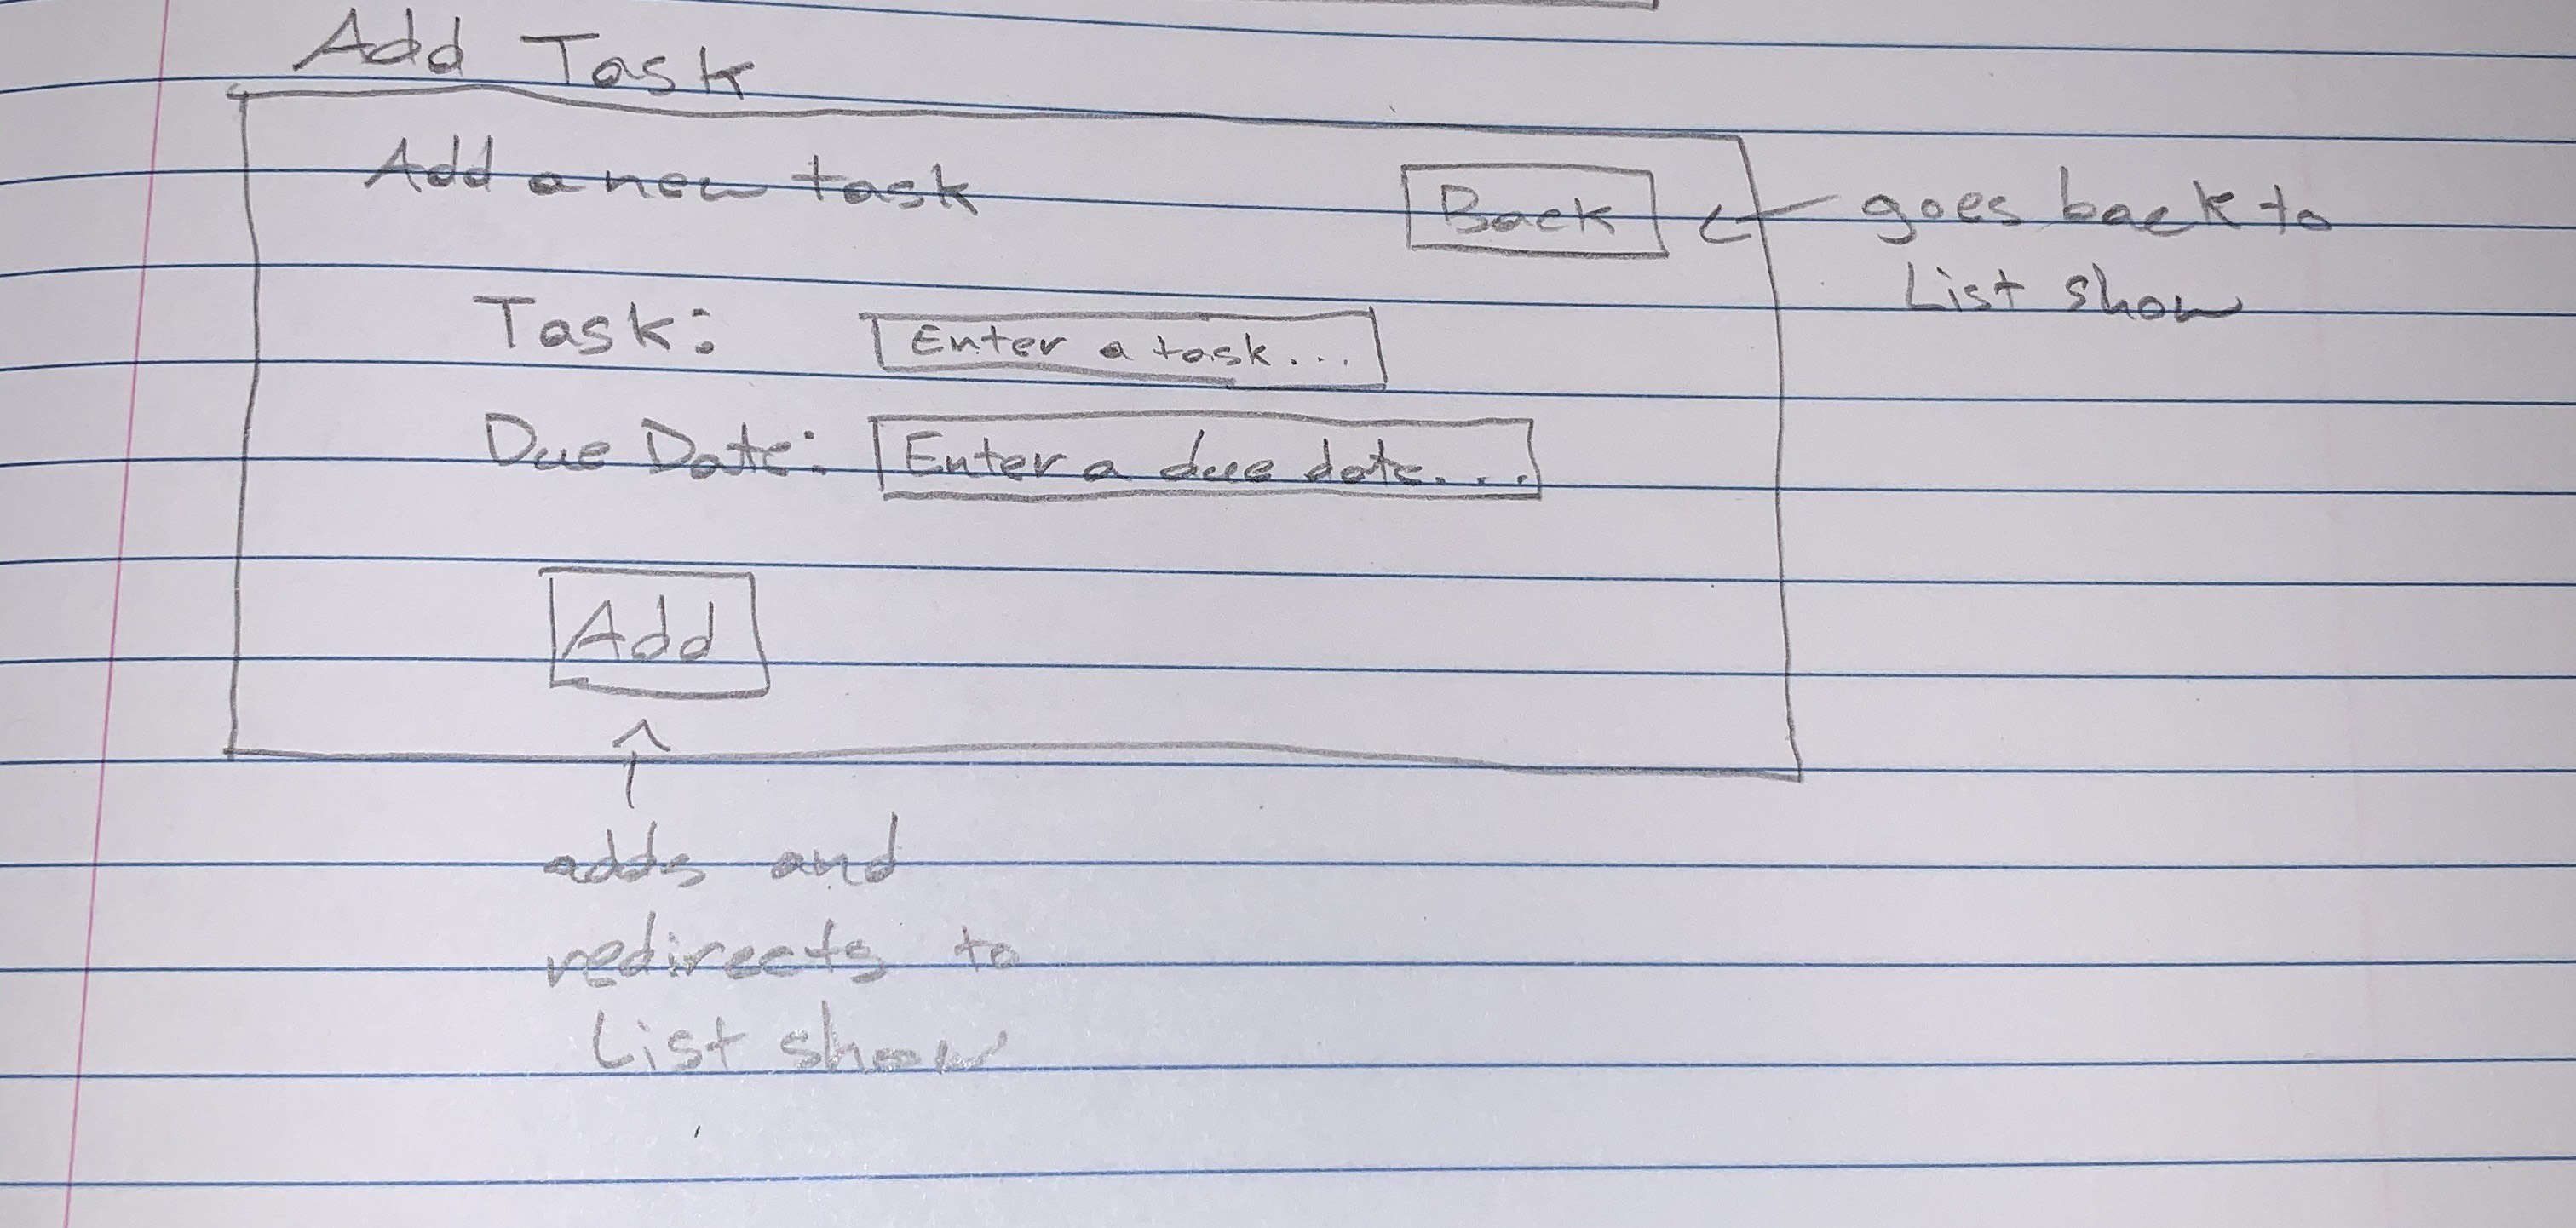 Add Task
Add a new task
Back
goes back to
List show
Task:
Enter a task...
Due Date:
Enter a due date...
Add
adds and
redirects to
List show